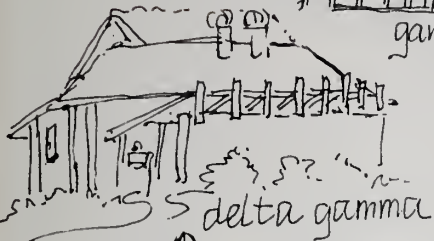 gam
delta gamma